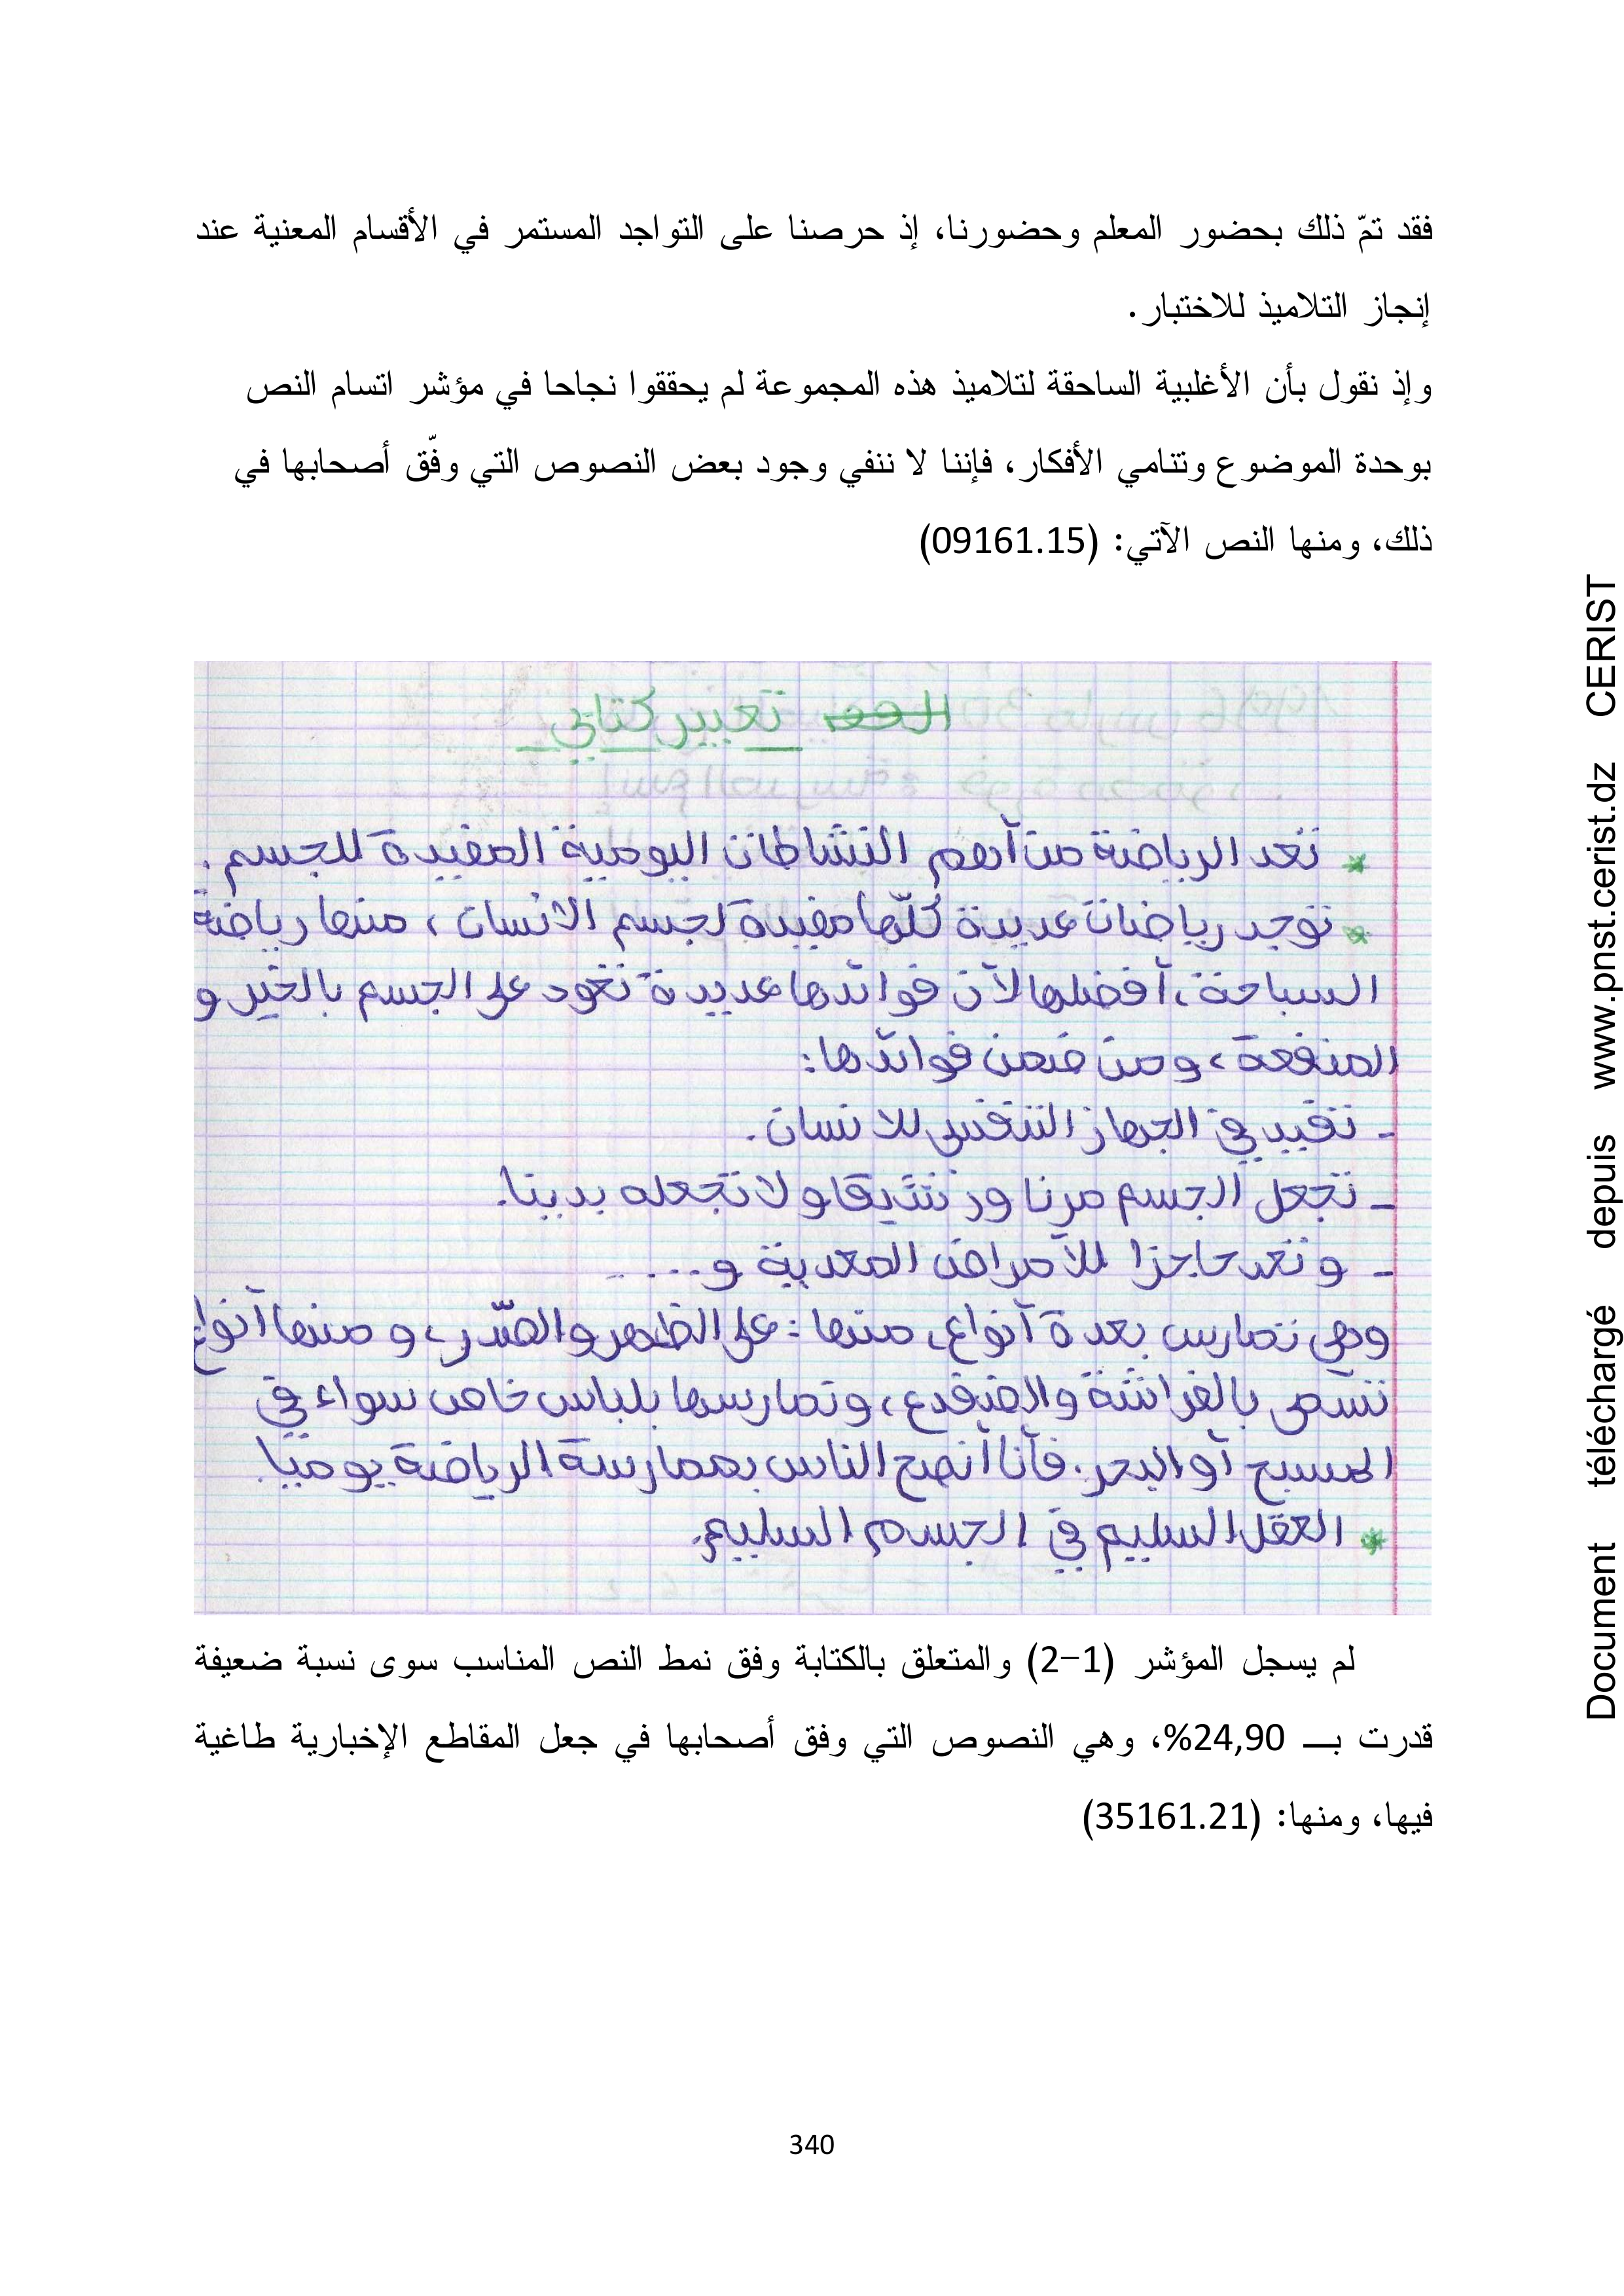 فقد تمّ ذلك بحضور المعلم وحضورنا، إذ حرصنا على التواجد المستمر في الأقسام المعنية عند
إنجاز التلاميذ للاختبار.
وإذ نقول بأن الأغلبية الساحقة لتلاميذ هذه المجموعة لم يحققوا نجاحا في مؤشر اتسام النص
بوحدة الموضوع وتنامي الأفكار، فإننا لا ننفي وجود بعض النصوص التي وفّق أصحابها في
ذلك، ومنها النص الآتي: (09161.15)
تعبير كتابي
* تعد الرياضة من أهم النشاطات اليومية المفيدة للجسم.
* توجد رياضات عديدة كلّها مفيدة لجسم الانسان، منها رياضة
السباحة، أفضلها لأن فوائدها عديدة تعود على الجسم بالخير و
المنفعة، ومن ضمن فوائدها:
- تفييد في الجهاز التنفسي للانسان.
- تجعل الجسم مرنا ورشيقا ولا تجعله بدينا.
- وتعد حاجزا للأمراض المعدية و....
وهي تمارس بعدة أنواع، منها: على الظهر والصّدر، و منها أنواع
تسمى بالفراشة والضفدع، وتمارسها بلباس خاص سواء في
المسبح أو البحر. فأنا أنصح الناس بممارسة الرياضة يوميا.
* العقل السليم في الجسم السليم.
لم يسجل المؤشر (1-2) والمتعلق بالكتابة وفق نمط النص المناسب سوى نسبة ضعيفة
قدرت بـ 24,90%، وهي النصوص التي وفق أصحابها في جعل المقاطع الإخبارية طاغية
فيها، ومنها: (35161.21)
340
Document téléchargé depuis www.pnst.cerist.dz CERIST